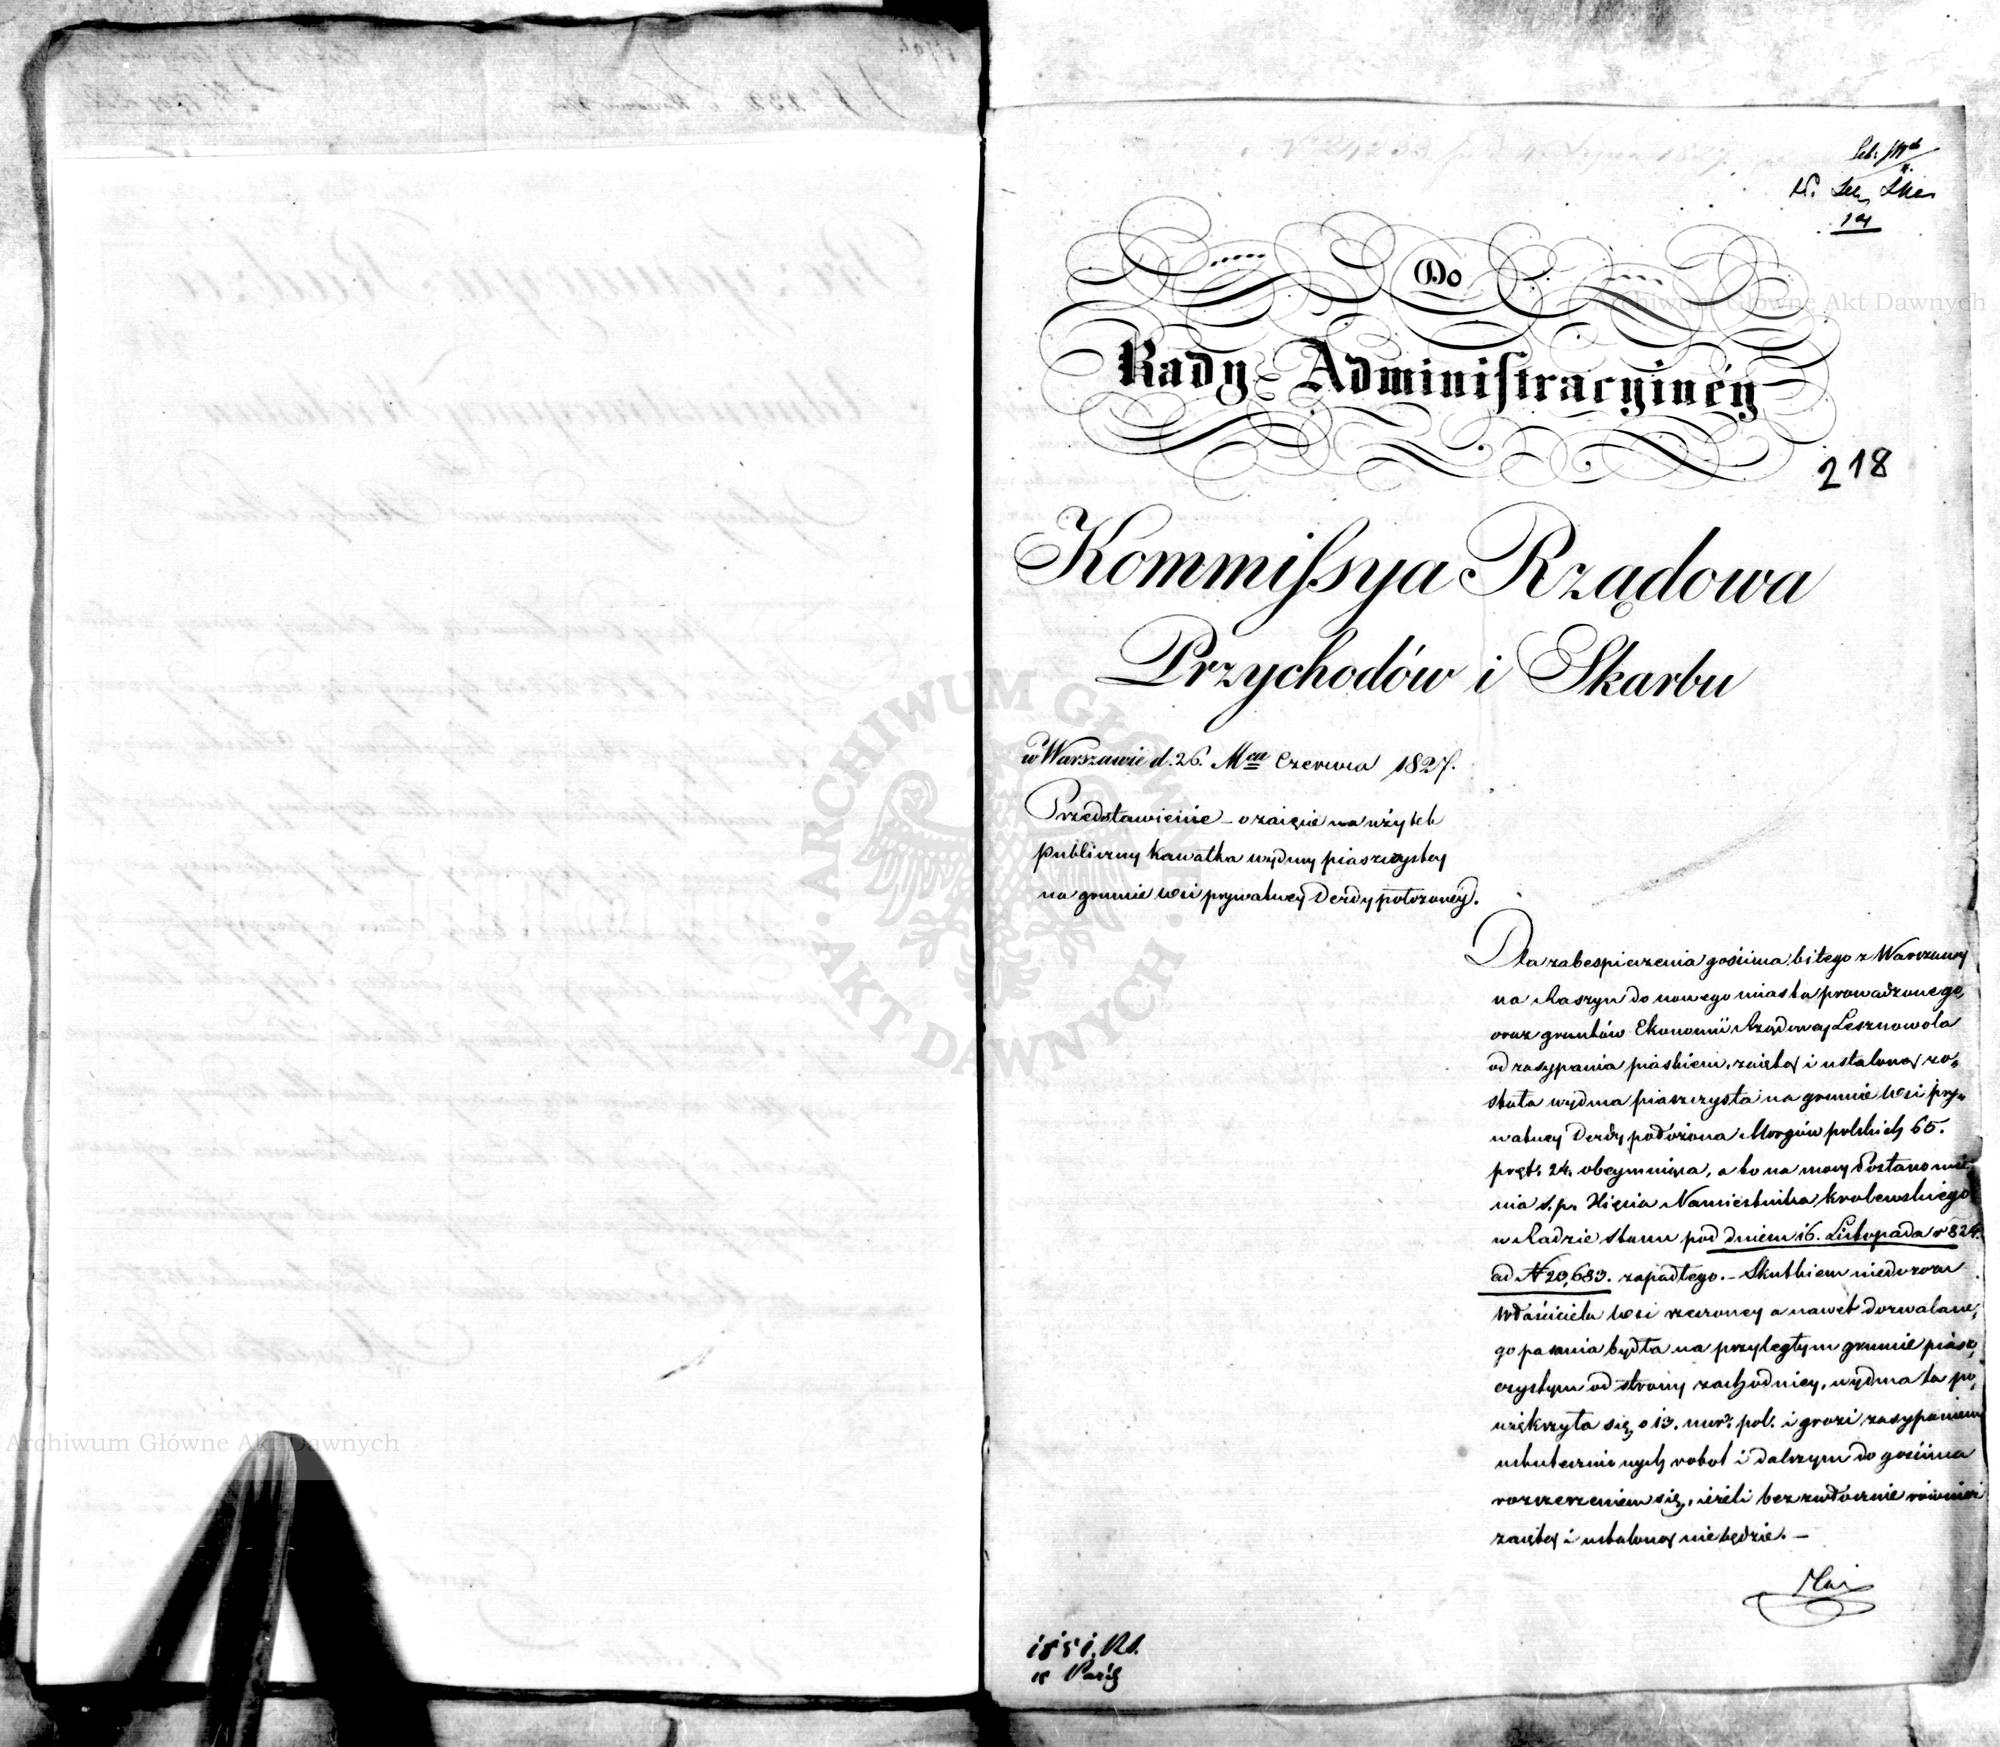 Do
Rady Administracyinéy
218
Kommissya Rządowa
Przychodów i Skarbu
w Warszawie d. 26. Mca Czerwca 1827.
Przedstawienie – o zaięcie na użytek
publiczny kawałka wydmy piaszczystey
na gruncie wsi prywatney Derdy położoney.
Dla zabespieczenia gościńca bitego z Warszawy
na Raszyn do nowego miasta prowadzonego,
oraz gruntów Ekonomii Rządowey Lesznowola
od zasypania piaskiem, zaiętą i ustaloną zo=
stała wydma piaszczysta na gruncie wsi pry=
watney Derdy położona Morgów polskich 65.
pręt. 24. obeymuiąca, a to na mocy Postanowie
nia ś. p. Xięcia Namiestnika Królewskiego
w Radzie stanu pod dniem 16. Listopada 1824.
ad N 20,683. zapadłego. – Skutkiem niedozoru
Właściciela wsi rzeczoney a nawet dozwalane=
go pasania bydła na przyległym gruncie piasz=
czystym od strony zachodniey, wydma ta po=
większyła się o 13. mor. pol. i grozi zasypaniem
uskutecznionych robot i dalszym do gościńca
rozszerzeniem się, ieżeli bezzwłocznie również
zaiętą i ustaloną nie będzie. –
Archiwum Główne Akt Dawnych
ARCHIWUM GŁÓWNE · AKT DAWNYCH ·
Archiwum Główne Akt Dawnych